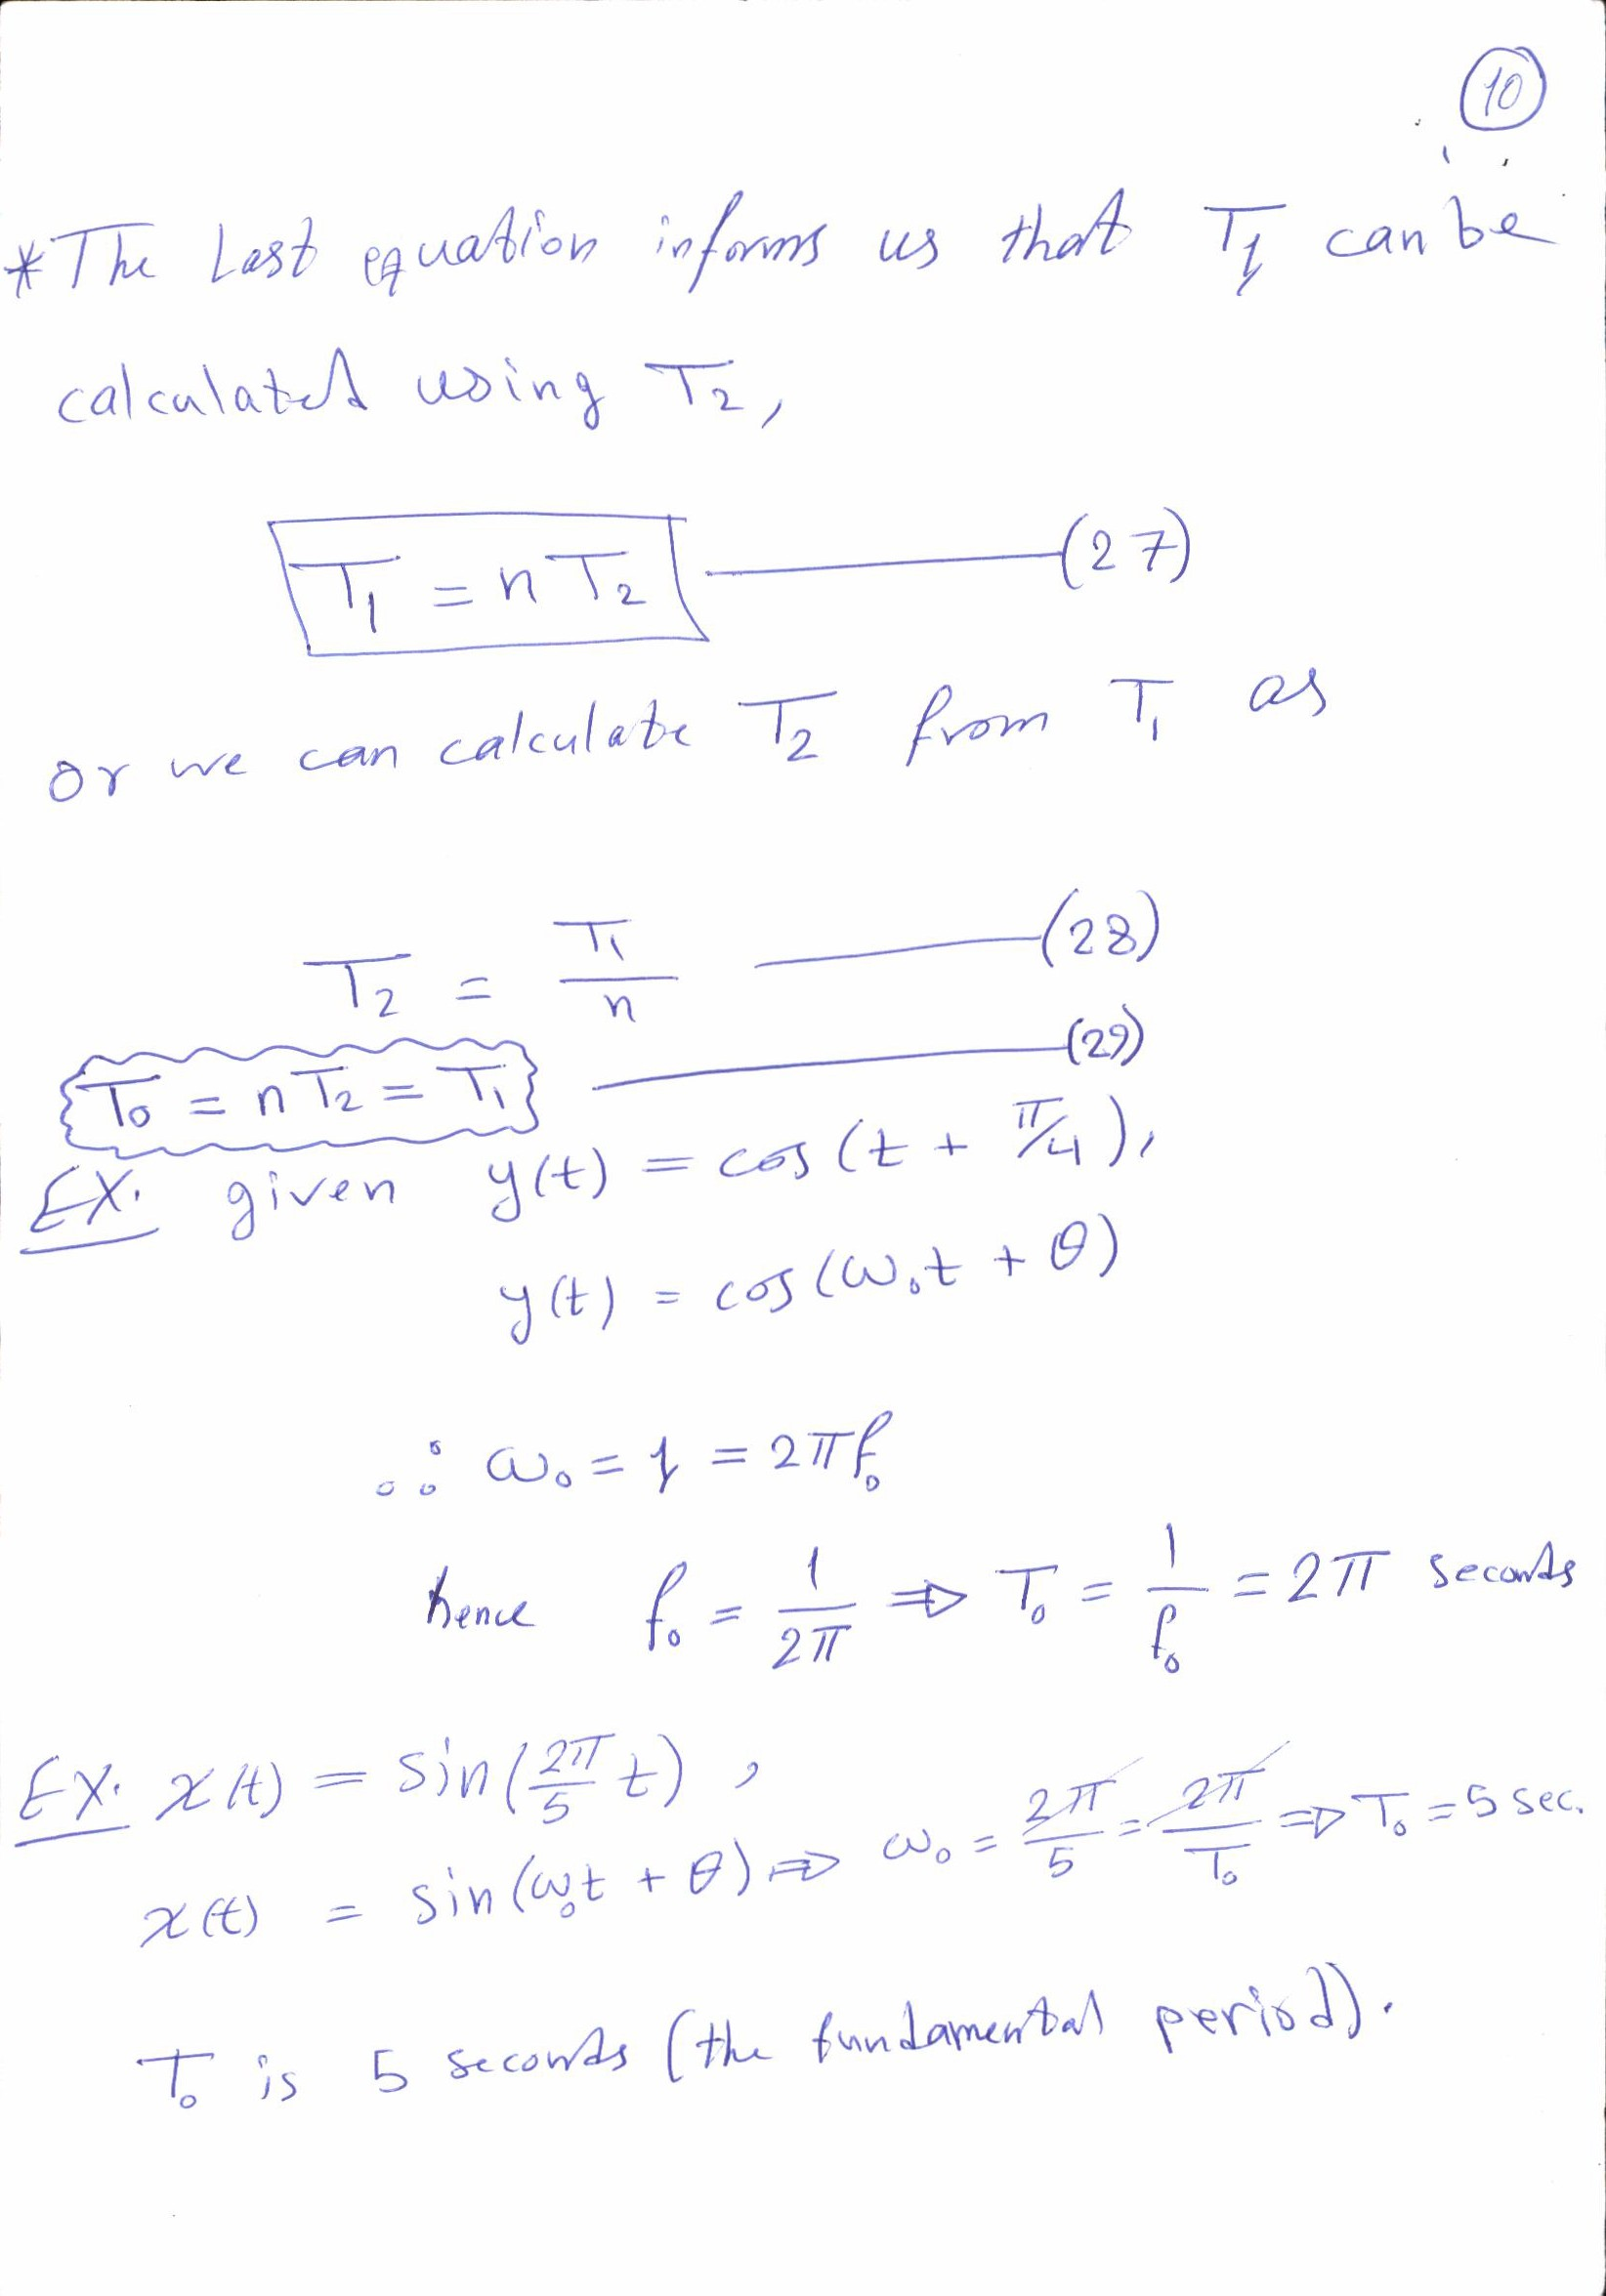 10
* The Last equation informs us that T₁ can be
calculated using T₂,
T₁ = n T₂ (27)
or we can calculate T₂ from T₁ as
T₂ = T₁/n (28)
T₀ = n T₂ = T₁ (29)
EX. given y(t) = cos(t + π/4),
y(t) = cos(ω₀t + θ)
∴ ω₀ = 1 = 2πf₀
hence f₀ = 1/2π ⇒ T₀ = 1/f₀ = 2π seconds
EX. x(t) = sin(2π/5 t),
x(t) = sin(ω₀t + θ) ⇒ ω₀ = 2π/5 = 2π/T₀ ⇒ T₀ = 5 sec.
T₀ is 5 seconds (the fundamental period).